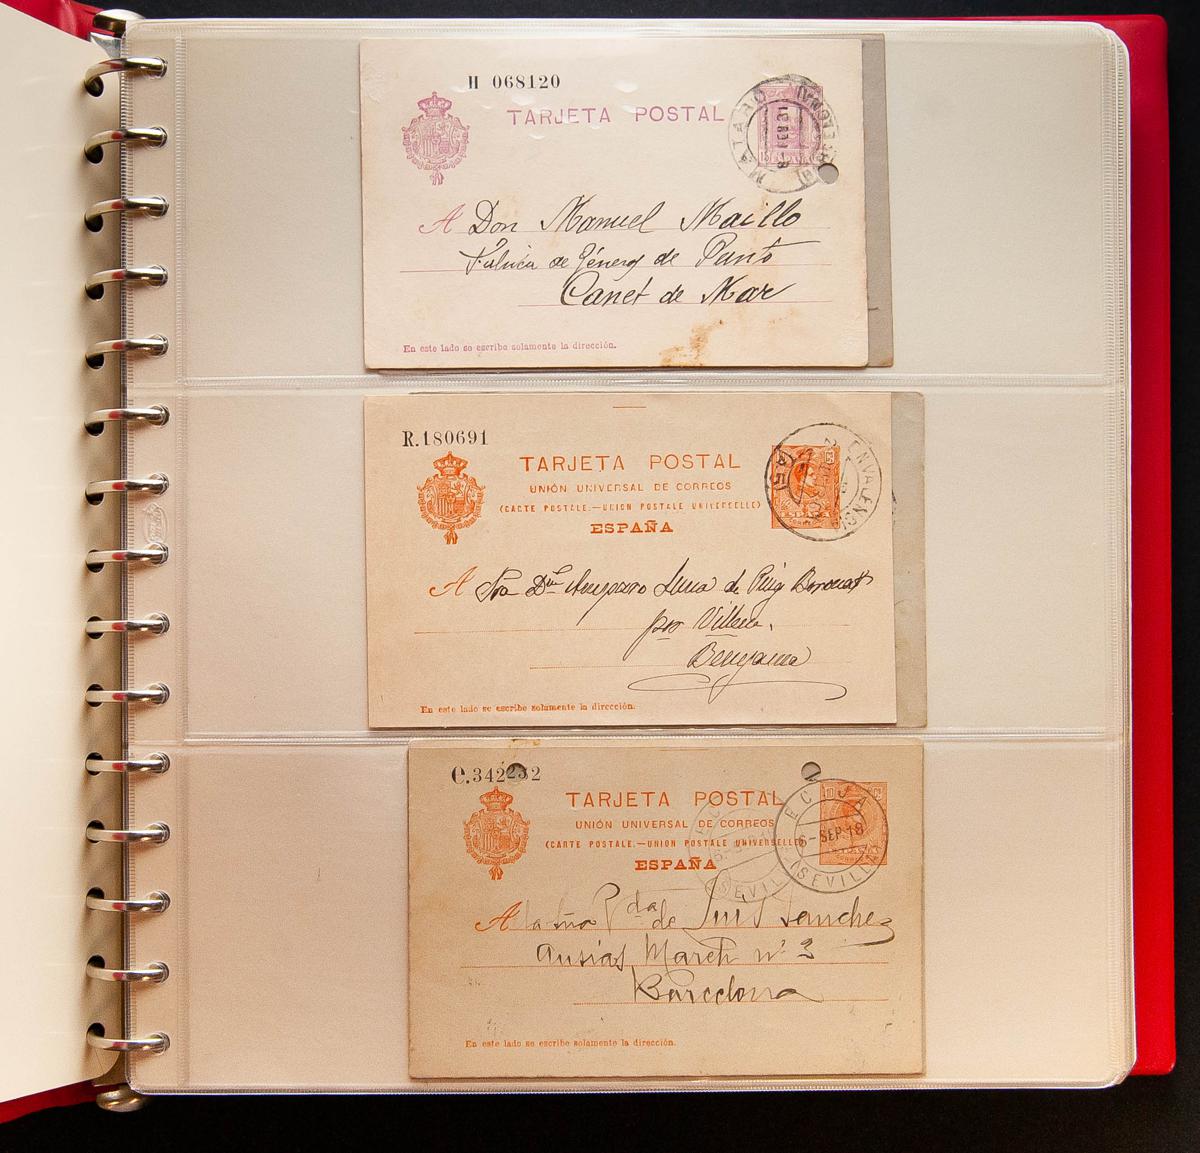 H 068120
TARJETA POSTAL
MATARO
A Don Manuel Maillo
Fabrica de Géneros de Punto
Canet de Mar
En este lado se escribe solamente la dirección.
R.180691
TARJETA POSTAL
UNIÓN UNIVERSAL DE CORREOS
(CARTE POSTALE.—UNION POSTALE UNIVERSELLE)
ESPAÑA
A Sra Dña Amparo Luna de Puig Boronat
por Villena.
Benejama
En este lado se escribe solamente la dirección.
C.342232
TARJETA POSTAL
UNIÓN UNIVERSAL DE CORREOS
(CARTE POSTALE.—UNION POSTALE UNIVERSELLE)
ESPAÑA
ECIJA
6-SEP.18
(SEVILLA)
A la Sra Vda de Luis Sanchez
Ausias March nº 3
Barcelona
En este lado se escribe solamente la dirección.